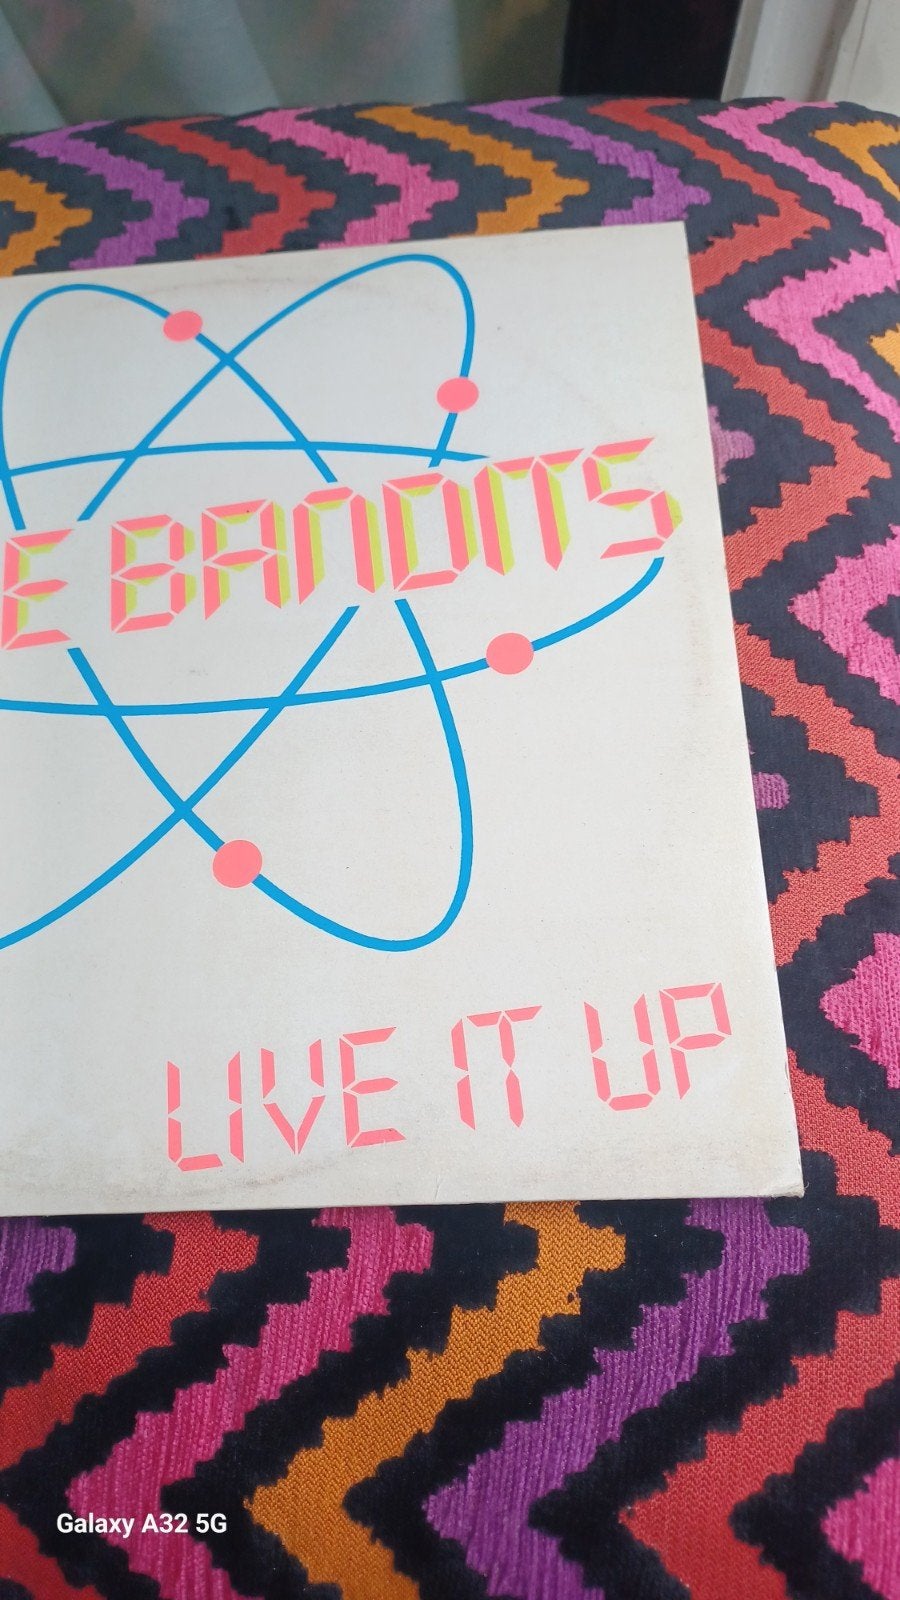 E BANDITS
LIVE IT UP
Galaxy A32 5G